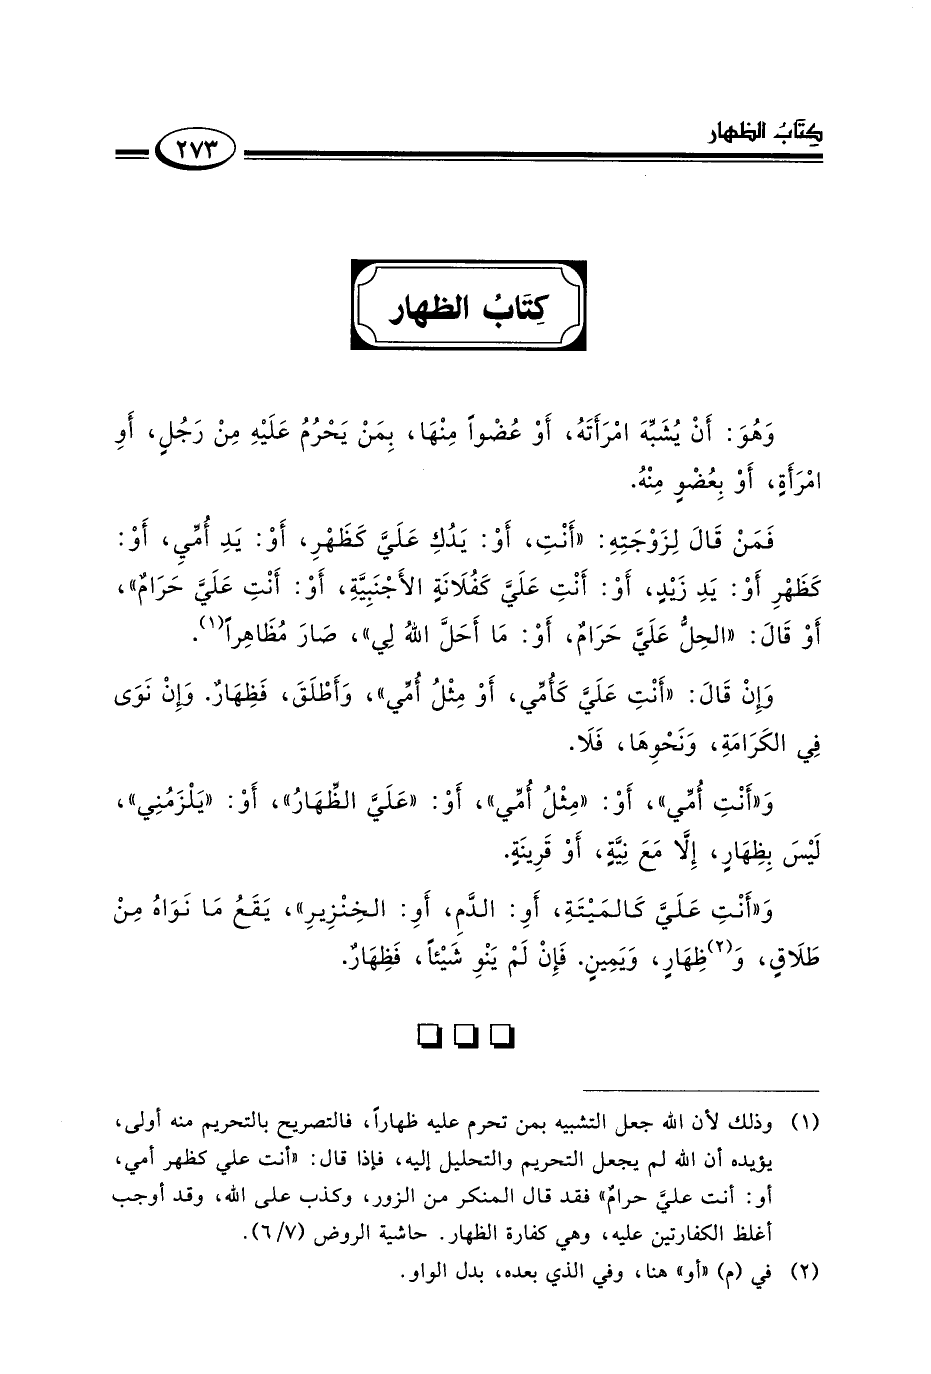 كِتَابُ الظهار
٢٧٣
كِتَابُ الظهار
وَهُوَ: أَنْ يُشَبِّهَ امْرَأَتَهُ، أَوْ عُضْواً مِنْهَا، بِمَنْ يَحْرُمُ عَلَيْهِ مِنْ رَجُلٍ، أَوِ
امْرَأَةٍ، أَوْ بِعُضْوٍ مِنْهُ.
فَمَنْ قَالَ لِزَوْجَتِهِ: «أَنْتِ، أَوْ: يَدُكِ عَلَيَّ كَظَهْرِ، أَوْ: يَدِ أُمِّي، أَوْ:
كَظَهْرِ أَوْ: يَدِ زَيْدٍ، أَوْ: أَنْتِ عَلَيَّ كَفُلَانَةٍ الأَجْنَبِيَّةِ، أَوْ: أَنْتِ عَلَيَّ حَرَامٌ»،
أَوْ قَالَ: «الحِلُّ عَلَيَّ حَرَامٌ، أَوْ: مَا أَحَلَّ اللهُ لِي»، صَارَ مُظَاهِراً(١).
وَإِنْ قَالَ: «أَنْتِ عَلَيَّ كَأُمِّي، أَوْ مِثْلُ أُمِّي»، وَأَطْلَقَ، فَظِهَارٌ. وَإِنْ نَوَى
فِي الكَرَامَةِ، وَنَحْوِهَا، فَلَا.
وَ«أَنْتِ أُمِّي»، أَوْ: «مِثْلُ أُمِّي»، أَوْ: «عَلَيَّ الظِّهَارُ»، أَوْ: «يَلْزَمُنِي»،
لَيْسَ بِظِهَارٍ، إِلَّا مَعَ نِيَّةٍ، أَوْ قَرِينَةٍ.
وَ«أَنْتِ عَلَيَّ كَالمَيْتَةِ، أَوِ: الدَّمِ، أَوِ: الخِنْزِيرِ»، يَقَعُ مَا نَوَاهُ مِنْ
طَلَاقٍ، وَ(٢)ظِهَارٍ، وَيَمِينٍ. فَإِنْ لَمْ يَنْوِ شَيْئاً، فَظِهَارٌ.
(١) وذلك لأن الله جعل التشبيه بمن تحرم عليه ظهاراً، فالتصريح بالتحريم منه أولى،
يؤيده أن الله لم يجعل التحريم والتحليل إليه، فإذا قال: «أنت علي كظهر أمي،
أو: أنت عليَّ حرامٌ» فقد قال المنكر من الزور، وكذب على الله، وقد أوجب
أغلظ الكفارتين عليه، وهي كفارة الظهار. حاشية الروض (٦/٧).
(٢) في (م) «أو» هنا، وفي الذي بعده، بدل الواو.